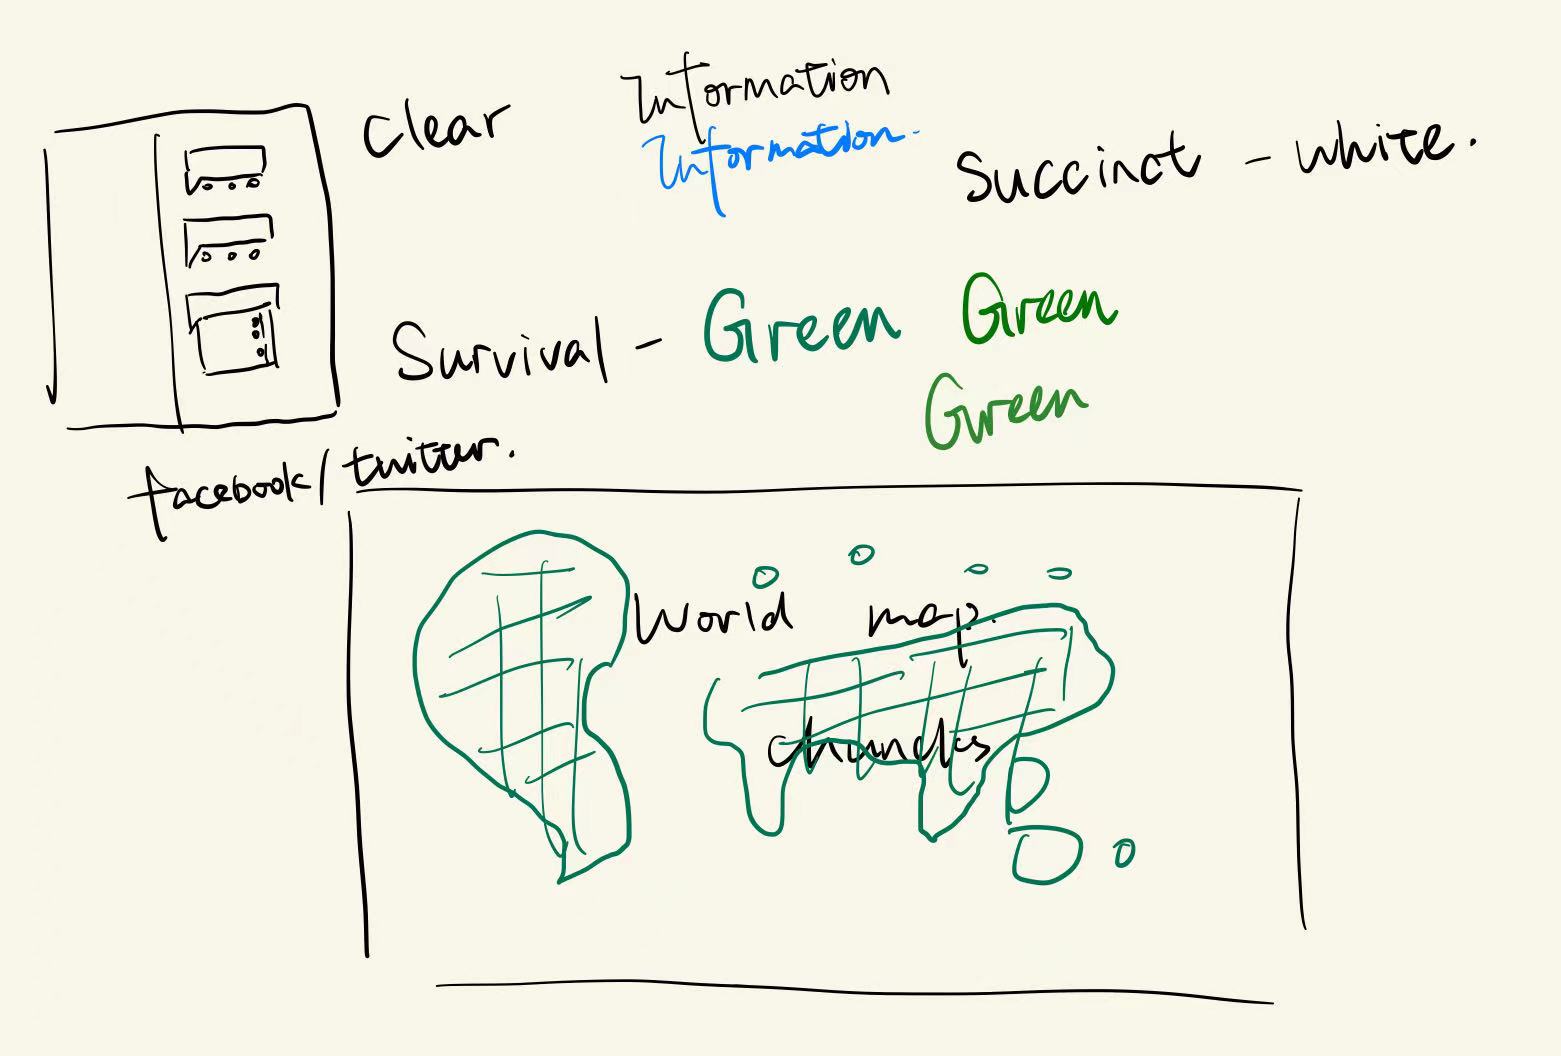 Clear
Information
Information.
Succinct - white.
Survival - Green Green
Green
facebook/twitter.
World map.
chuncks